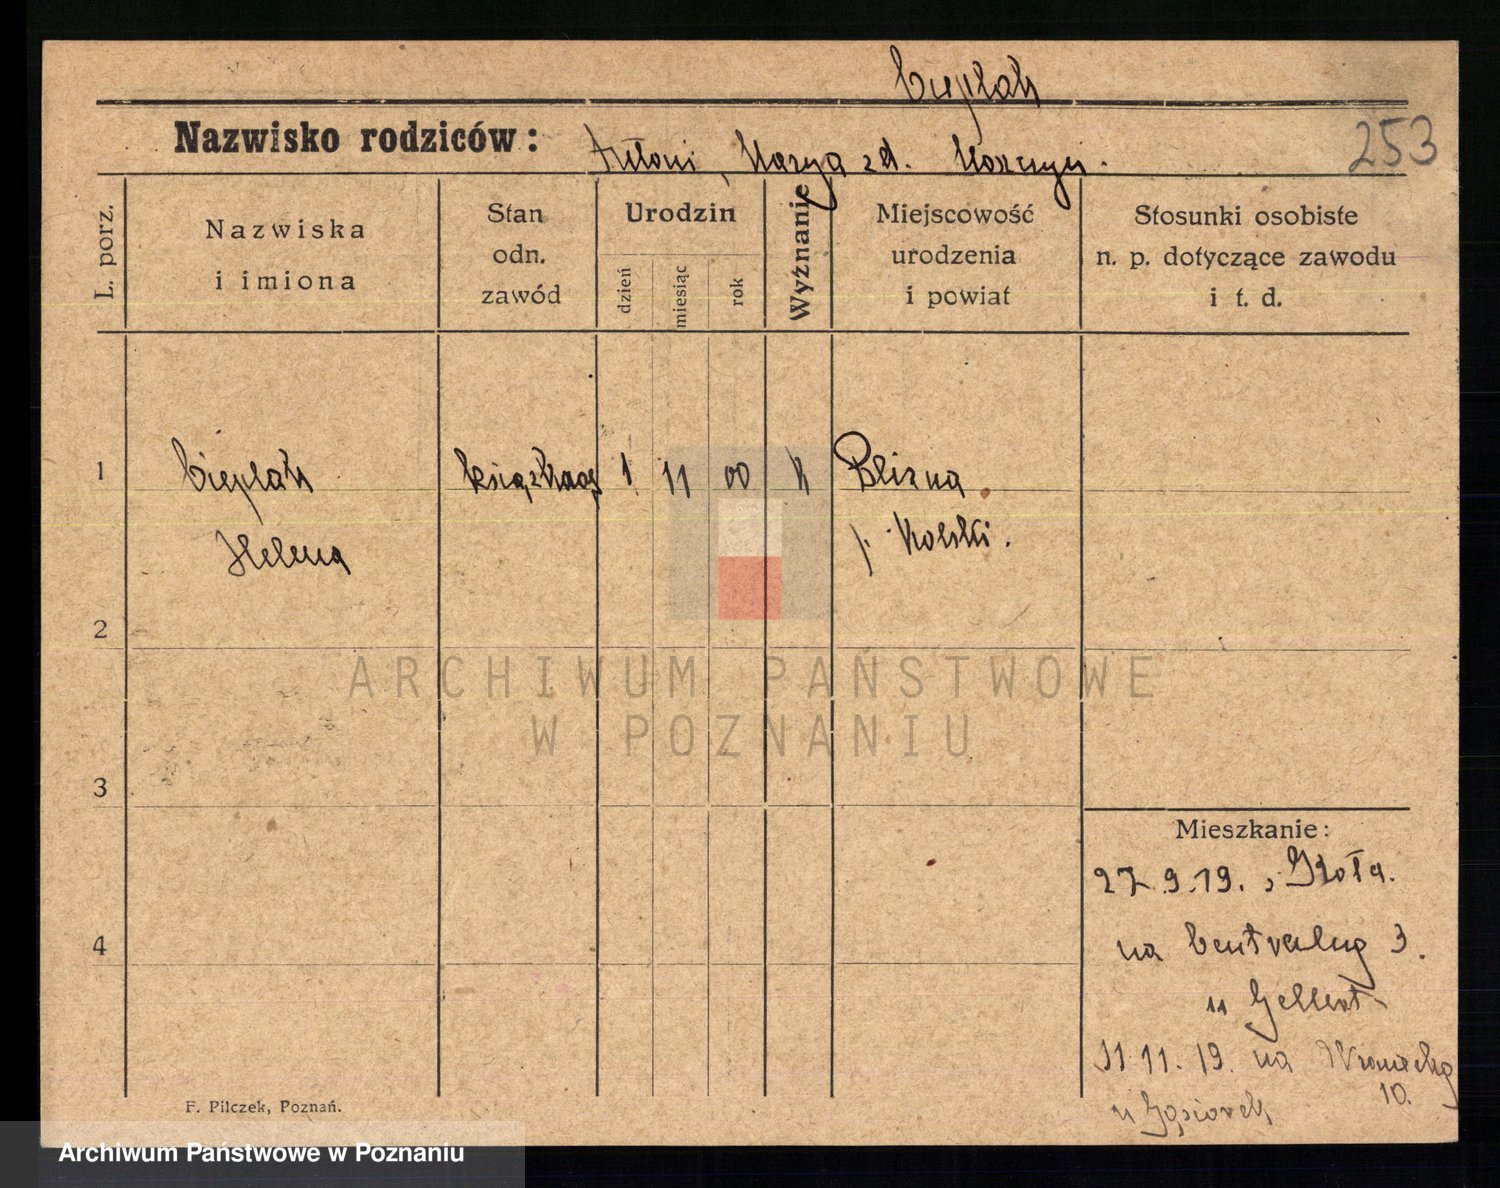 Cieplak
Nazwisko rodziców: Antoni, Marya zd.
253
L. porz.
Nazwiska
i imiona
Stan
odn.
zawód
Urodzin
dzień
miesiąc
rok
Wyżnanie
Miejscowość
urodzenia
i powiat
Stosunki osobiste
n. p. dotyczące zawodu
i t. d.
1 Cieplak 1 11 00 k Blizna
Helena p. Kolski.
2
3
4
Mieszkanie:
27.9.19. z Koła.
na 3.
u Gellert
11.11.19. na Wroniecką
10.
u Gąsiorek
F. Pilczek, Poznań.
ARCHIWUM PAŃSTWOWE
W POZNANIU
Archiwum Państwowe w Poznaniu